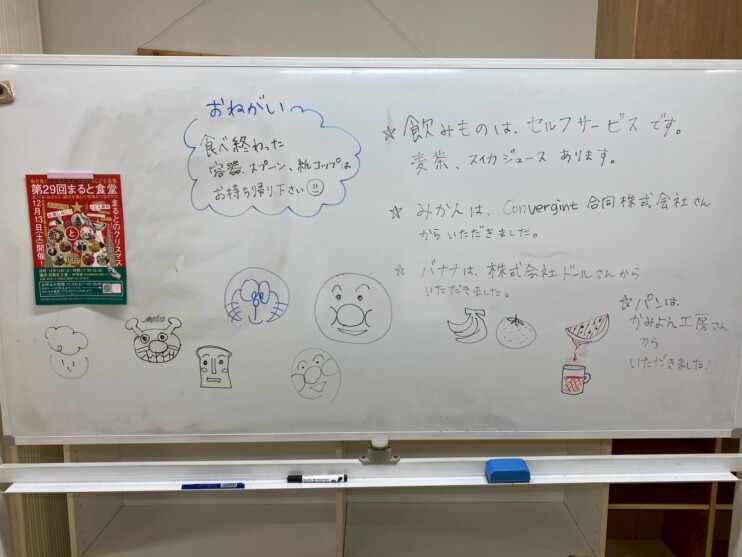 おねがい〜
食べ終わった
容器、スプーン、紙コップは
お持ち帰り下さい
☆ 飲みものは、セルフサービスです。
麦茶、スイカジュース あります。
☆ みかんは、Convergint合同株式会社さん
からいただきました。
☆ バナナは、株式会社ドールさんから
いただきました。
☆ パンは
かみよん工房さん
から
いただきました!
第29回まると食堂
12月13日(土)開催!
まるとのクリスマス
と